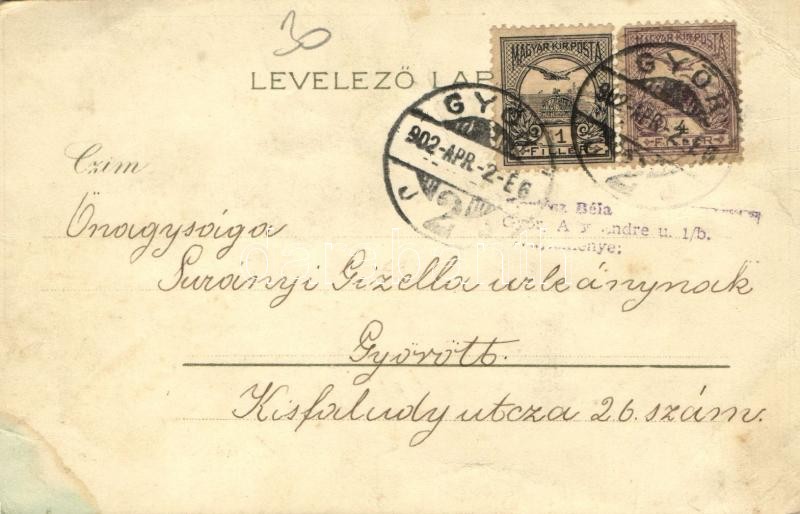 30
LEVELEZŐ LAP
MAGYAR KIR. POSTA
1
FILLÉR
MAGYAR KIR. POSTA
4
FILLÉR
GYŐR
902-APR.-2-E6
GYŐR
902-APR.-
Czim
Béla
u. 1/b.
Önagysága
Surányi Gizella urleánynak
Győrött.
Kisfaludy utcza 26. szám.